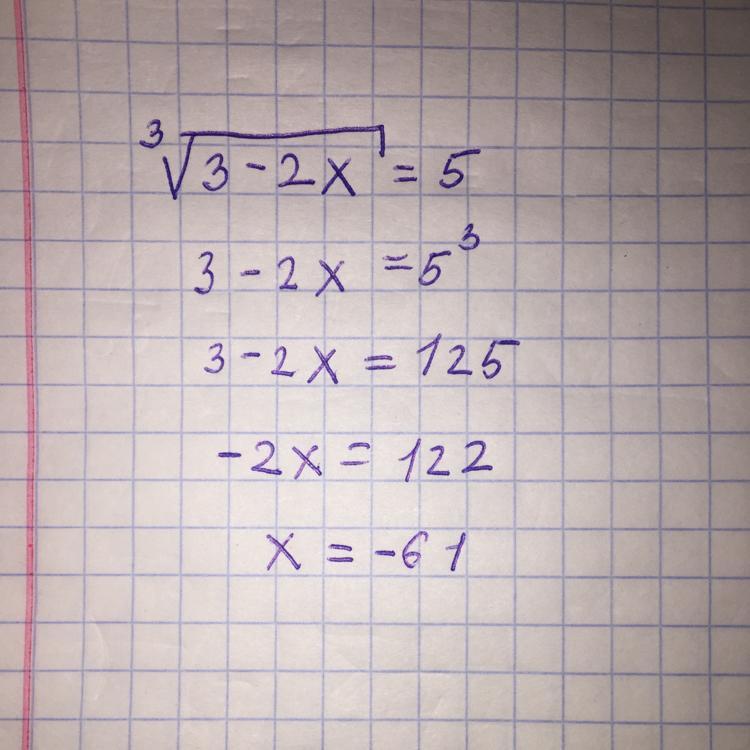 ³√(3-2x) = 5
3-2x = 5³
3-2x = 125
-2x = 122
x = -61